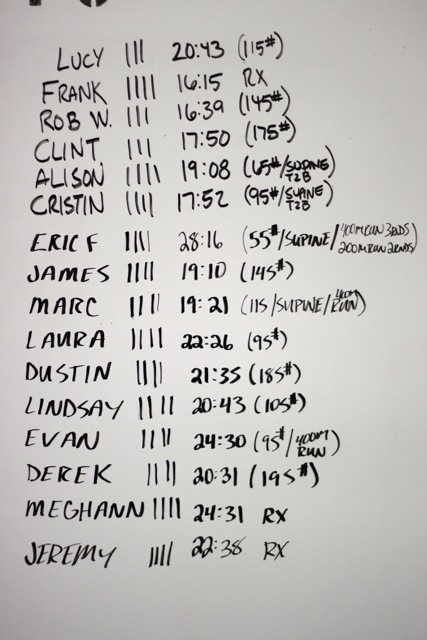 LUCY ||| 20:43 (115#)
FRANK |||| 16:15 RX
ROB W. ||| 16:39 (145#)
CLINT ||| 17:50 (175#)
ALISON |||| 19:08 (65#/SUPINE T2B)
CRISTIN |||| 17:52 (95#/SUPINE T2B)
ERIC F |||| 28:16 (55#/SUPINE/400M RUN 3RDS 200M RUN 2RDS)
JAMES |||| 19:10 (145#)
MARC |||| 19:21 (115/SUPINE/400M RUN)
LAURA |||| 22:26 (95#)
DUSTIN |||| 21:35 (185#)
LINDSAY |||| 20:43 (105#)
EVAN |||| 24:30 (95#/400M RUN)
DEREK |||| 20:31 (195#)
MEGHANN |||| 24:31 RX
JEREMY |||| 22:38 RX